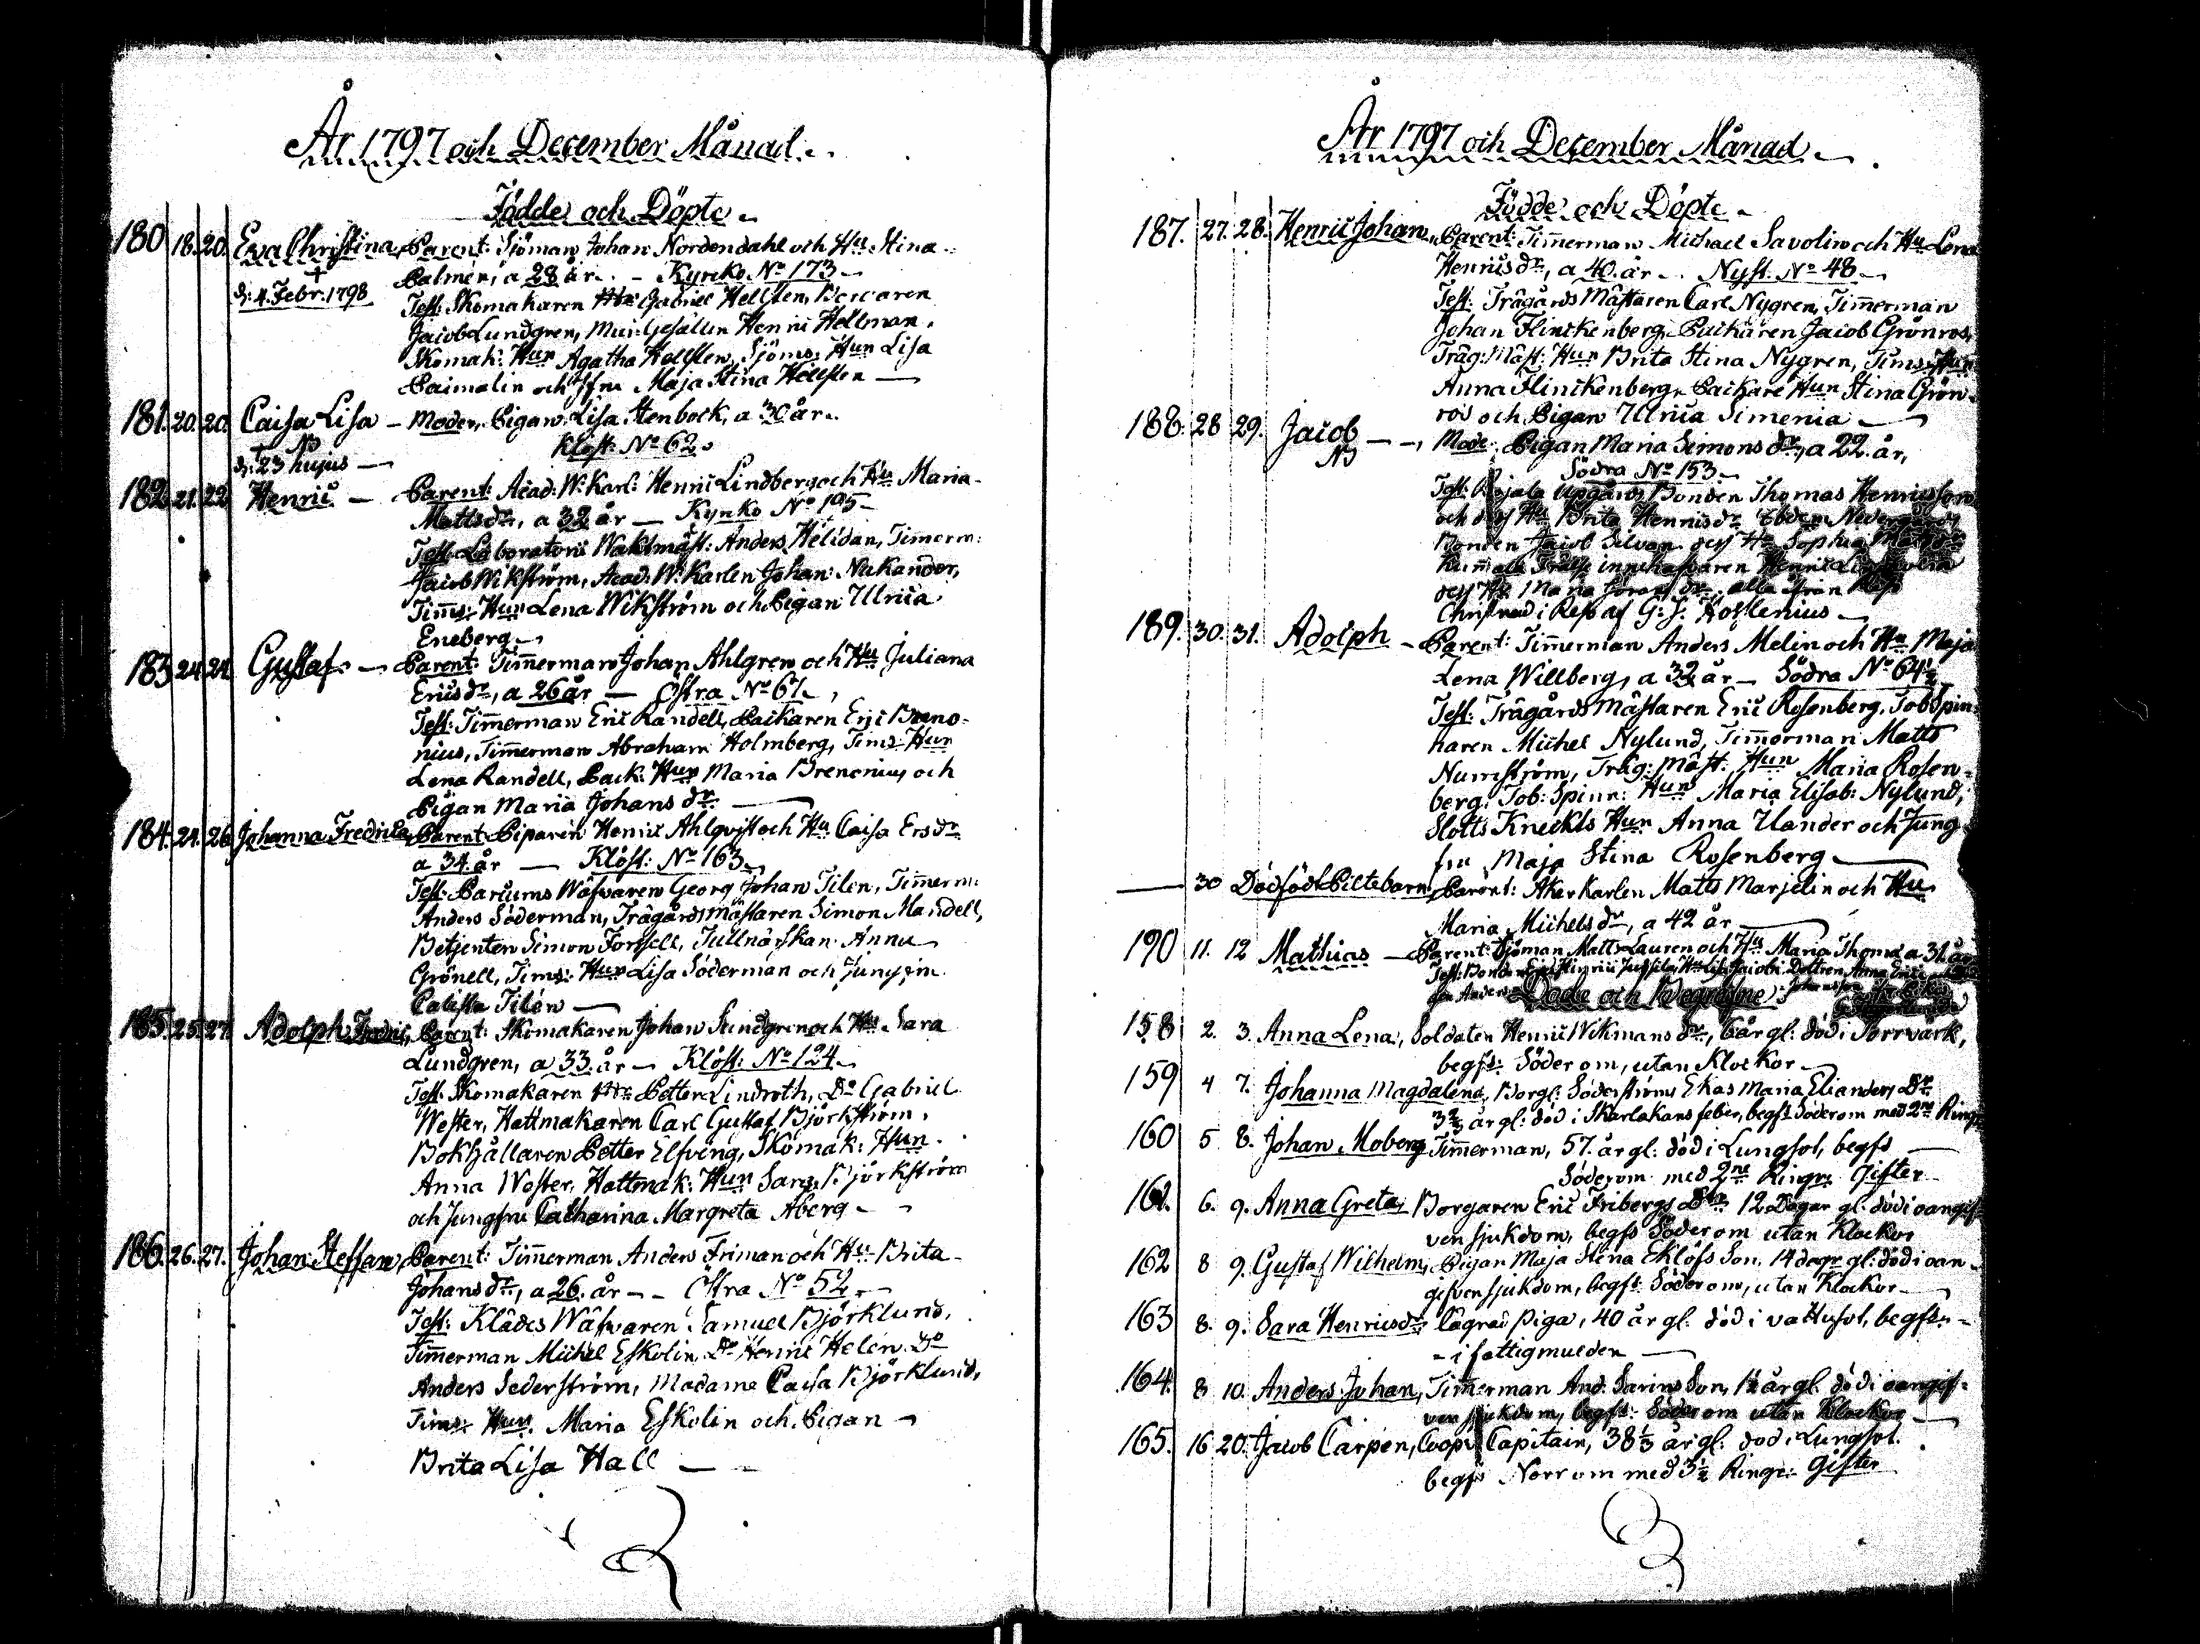 År 1797 och December Månad.
Födde och Döpte.
180 18. 20. Eva Christina, Parent: Sjöman Johan Nordendahl och Hu Stina
Palmén, a 28 år. - Kyrko No 173
d: 4. Febr. 1798 Test: Skomakaren Gabriel Hellsten, Borgaren
Jacob Lundgren, Mur: Gesällen Henric Hellman.
Skomak: Hun Agatha Hellsten, Sjöms: Hun Lisa
Paimolin och Jfru Maja Stina Hellsten
181. 20. 20. Caisa Lisa - Moder, Pigan Lisa Stenbock, a 30 år.
Klöst: No 62.
d: 23 hujus
182 21. 22 Henric - Parent: Acad: W: Karl: Henric Lindberg och Hu Maria
Matts dr, a 32 år - Kyrko No 195
Test: Laboratorii Waktmäst: Anders Helidan, Timerm:
Jacob Wikström, Acad. W: Karlen Johan Nukander,
Tims: Hun Lena Wikström och Pigan Ulrica
Eneberg
183 24 24. Gustaf. - Parent: Timmerman Johan Ahlgren och Hu Juliana
Erics dr, a 26 år - Östra No 67.
Test: Timmerman Eric Randell, Packaren Eric Breno-
nius, Timmerman Abraham Holmberg, Tims: Hun
Lena Randell, Pack: Hun Maria Brenonius och
Pigan Maria Johans dr.
184. 24. 26 Johanna Fredrica, Parent: Piparen Henric Ahlqvist och Hu Caisa Ers dr
a 34. år - Klöst: No 163.
Test: Parcums Wäfvaren Georg Johan Tilen, Timerm:
Anders Söderman, Trägårdsmästaren Simon Mandell,
Betjenten Simon Forssell, Tullnärskan Anna
Grönell, Tims: Hun Lisa Söderman och Jungfru
Calista Tilén
185. 25. 27. Adolph Fredric, Parent: Skomakaren Johan Lundgren och Hu Sara
Lundgren, a 33. år - Klöst: No 124.
Test: Skomakaren Petter Lindroth, Do Gabriel
Wester, Hattmakaren Carl Gustaf Björkström.
Bokhållaren Petter Elfving, Skomak: Hun
Anna Wester, Hattmak: Hun Sara Björkström
och Jungfru Catharina Margreta Åberg
186. 26. 27. Johan Steffan, Parent: Timmerman Anders Friman och Hu Brita
Johans dr, a 26. år - - Östra No 52.
Test: Klädes Wäfvaren Samuel Björklund,
Timmerman Michel Eskolin, Do Henric Helén. Do
Anders Sederström, Madame Caisa Björklund,
Tims: Hun. Maria Eskolin och Pigan
Brita Lisa Hall
År 1797 och December Månad
Födde och Döpte
187. 27. 28. Henric Johan, Parent: Timmerman Michael Savolin och Hu Lena
Henrics dr, a 40. år - Nyst. No 48
Test: Trägårds Mästaren Carl Nygren, Timmerman
Johan Flinckenberg, Packaren Jacob Grönros,
Träg: Mäst: Hun Brita Stina Nygren, Tims: Hun
Anna Flinckenberg, Packare Hun Stina Grön-
ros och Pigan Ulrica Simenia
188. 28 29. Jacob - - Mode: Pigan Maria Simons dr, a 22. år,
Södra No 153
Test: Upgårds Bonden Thomas Henricsson
och dess Hu Brita Henrics dr
Bonden Jacob Silvan. dess Hu Sophia
innehafvaren Henric
dess Hu Maria Görans dr, alla ifrån
Christned i Reso af G: J. Hoslenius
189. 30. 31. Adolph - Parent: Timmerman Anders Melin och Hu Maja
Lena Willberg, a 32 år - Södra No 64½
Test: Trägårds Mästaren Eric Rosenberg, Tob Spin-
naren Michel Nylund, Timmerman Matts
Nurmström, Träg: Mäst: Hun Maria Rosen-
berg, Tob: Spinn: Hun Maria Elisab: Nylund,
Slotts Kneckts Hun Anna Ulander och Jung-
fru Maja Stina Rosenberg
30 Dödfödt Piltebarn, Parent: Åker Karlen Matts Marjelin och Hu
Maria Michels dr, a 42 år
190 11. 12 Mathias - Parent: Sjöman Matts Lauren och Hu Maria Thoms a 31. år
Döde och Begrafne
158 2. 3. Anna Lena, Soldaten Henric Wikmans dr, 6 år gl: död i Torrvärk,
begfs: Söder om, utan Klockor
159 4 7. Johanna Magdalena, Borgl: Söderströms Ekas Maria Elianders Dr
3⅔ år gl: död i Skarlakans feber, begfs Söder om med 2ne Ring:
160 5 8. Johan Moberg Timmerman, 57. år gl: död i Lungsot, begfs
Söder om med 2ne Ringr: Gifter
161. 6. 9. Anna Greta, Borgaren Eric Fribergs Dr 12 Dagar gl: död i oangif-
ven sjukdom, begfs Söder om utan Klockor
162 8 9. Gustaf Wilhelm, Pigan Maja Stena Eklöfs Son, 14 dagr gl: död i oan-
gifven sjukdom, begfs: Söder om, utan Klockor
163 8. 9. Sara Henrics dr Lägrad Piga, 40 år gl: död i vattusot, begfs
- i fattigmullen
164. 8 10. Anders Johan, Timmerman And: Sarins Son, 1½ år gl: död i oangif-
ven sjukdom, begfs: Söder om utan Klockor
165. 16 20. Jacob Carpen, Coopv Capitain, 38⅓ år gl: död i Lungsot.
begfs Norr om med 3½ Ringr: Gifter